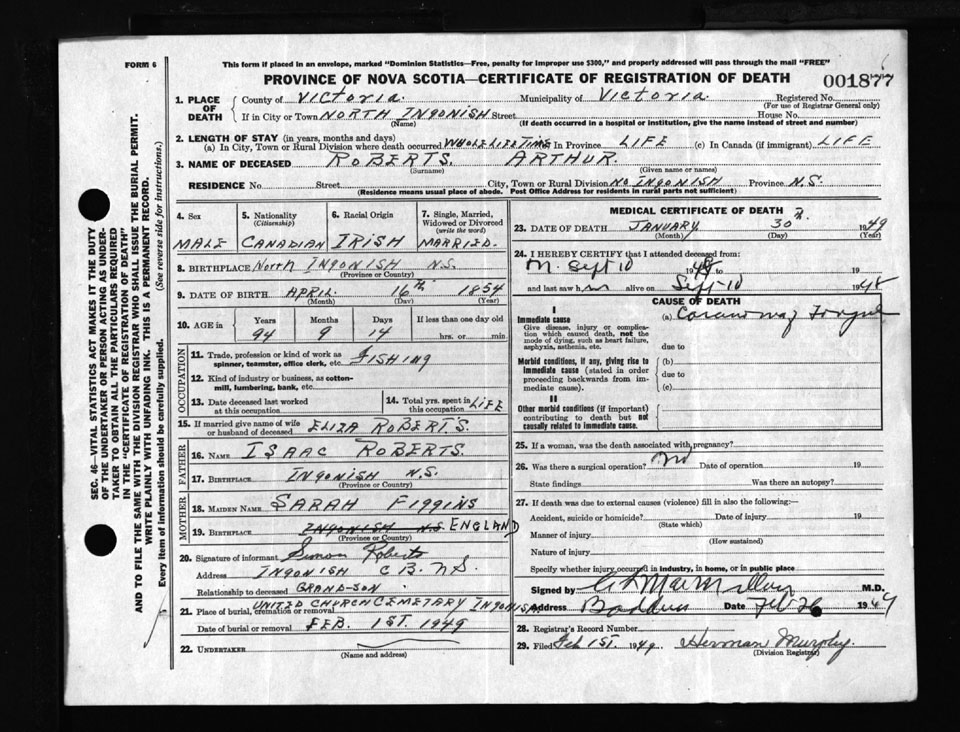 FORM 6
This form if placed in an envelope, marked "Dominion Statistics—Free, penalty for improper use $300," and properly addressed will pass through the mail "FREE"
PROVINCE OF NOVA SCOTIA—CERTIFICATE OF REGISTRATION OF DEATH
001877
SEC. 46—VITAL STATISTICS ACT MAKES IT THE DUTY
OF THE UNDERTAKER OR PERSON ACTING AS UNDER-
TAKER TO OBTAIN ALL THE PARTICULARS REQUIRED
IN THE "CERTIFICATE OF REGISTRATION OF DEATH"
AND TO FILE THE SAME WITH THE DIVISION REGISTRAR WHO SHALL ISSUE THE BURIAL PERMIT.
WRITE PLAINLY WITH UNFADING INK. THIS IS A PERMANENT RECORD.
Every item of information should be carefully supplied. (See reverse side for instructions.)
1. PLACE OF DEATH County of VICTORIA. Municipality of VICTORIA. Registered No.
(For use of Registrar General only)
If in City or Town NORTH INGONISH Street House No.
(Name) (If death occurred in a hospital or institution, give the name instead of street and number)
2. LENGTH OF STAY (in years, months and days)
(a) In City, Town or Rural Division where death occurred WHOLE LIFE TIME In Province LIFE (c) In Canada (if immigrant) LIFE
3. NAME OF DECEASED ROBERTS. ARTHUR.
(Surname) (Given name or names)
RESIDENCE No. Street City, Town or Rural Division No INGONISH Province N.S.
(Residence means usual place of abode. Post Office Address for residents in rural parts not sufficient)
4. Sex 5. Nationality (Citizenship) 6. Racial Origin 7. Single, Married, Widowed or Divorced (write the word)
MALE CANADIAN IRISH MARRIED.
8. BIRTHPLACE North INGONISH N.S.
(Province or Country)
9. DATE OF BIRTH APRIL 16th 1854
(Month) (Day) (Year)
10. AGE in Years Months Days If less than one day old
94 9 14 hrs. or min.
OCCUPATION
11. Trade, profession or kind of work as spinner, teamster, office clerk, etc. FISHING
12. Kind of industry or business, as cotton-mill, lumbering, bank, etc.
13. Date deceased last worked at this occupation
14. Total yrs. spent in this occupation LIFE
15. If married give name of wife or husband of deceased ELIZA ROBERTS.
FATHER
16. NAME ISAAC ROBERTS.
17. BIRTHPLACE INGONISH N.S.
(Province or Country)
MOTHER
18. MAIDEN NAME SARAH FIGGINS
19. BIRTHPLACE INGONISH N.S. ENGLAND
(Province or Country)
20. Signature of informant Simon Roberts
Address INGONISH C B. N.S.
Relationship to deceased GRAND-SON.
21. Place of burial, cremation or removal UNITED CHURCH CEMETARY INGONISH
Date of burial or removal FEB. 1ST. 1949
22. UNDERTAKER
(Name and address)
MEDICAL CERTIFICATE OF DEATH
23. DATE OF DEATH JANUARY 30 1949
(Month) (Day) (Year)
24. I HEREBY CERTIFY that I attended deceased from:
Sept 10 1948 to 19
and last saw h m alive on Sept 10 1948
CAUSE OF DEATH
I
Immediate cause (a)
Give disease, injury or complication which caused death, not the mode of dying, such as heart failure, asphyxia, asthenia, etc. due to
Morbid conditions, if any, giving rise to immediate cause (stated in order proceeding backwards from immediate cause). (b)
due to
(c)
II
Other morbid conditions (if important) contributing to death but not causally related to immediate cause.
25. If a woman, was the death associated with pregnancy?
26. Was there a surgical operation? No Date of operation 19
State findings Was there an autopsy?
27. If death was due to external causes (violence) fill in also the following:—
Accident, suicide or homicide? Date of injury 19
(State which)
Manner of injury
(How sustained)
Nature of injury
Specify whether injury occurred in industry, in home, or in public place
Signed by MacMillan M.D.
Address Baddeck Date Feb 26 1949
28. Registrar's Record Number
29. Filed Feb 1ST. 1949 Herman Murphy.
(Division Registrar)